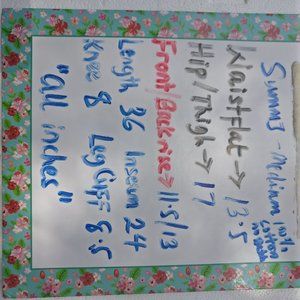 - Medium 100% Cotton
Waistflat → 13.5
Hip/Thigh → 17
Front/Back rise → 11.5/13
Length 36 Inseam 24
Knee 8 LegCuff 8.5
"all inches"